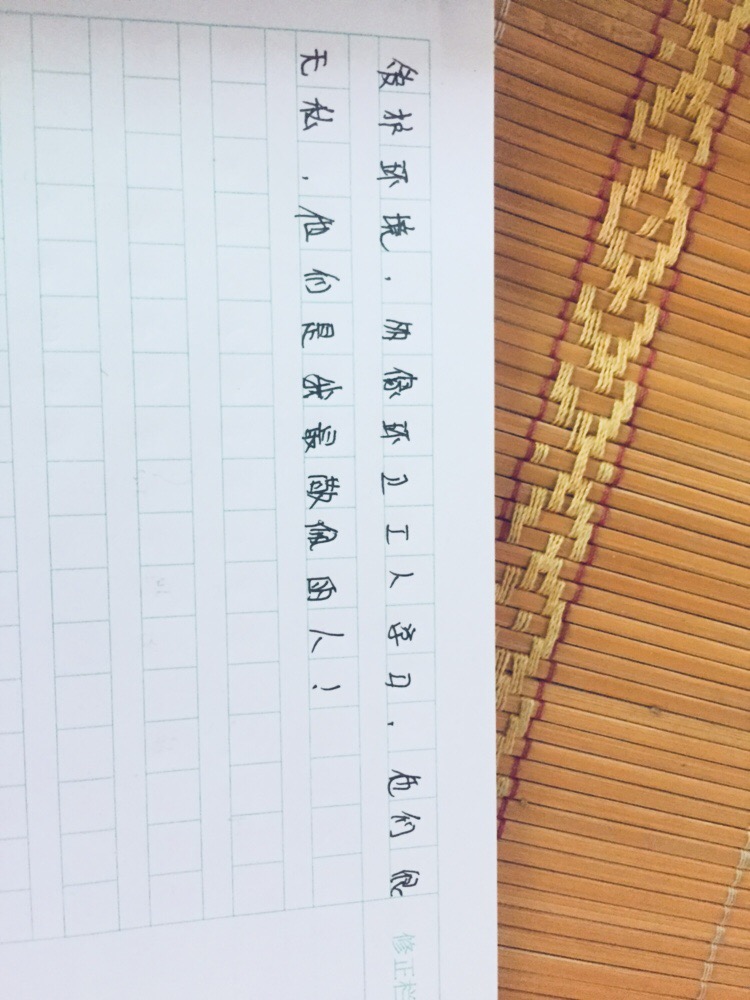 爱护环境，要像环卫工人学习，他们很
无私，他们是我最敬佩的人！
修正栏